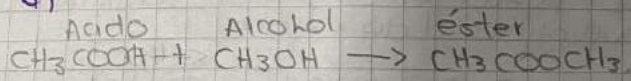 Acido Alcohol éster
CH3COOH + CH3OH → CH3COOCH3